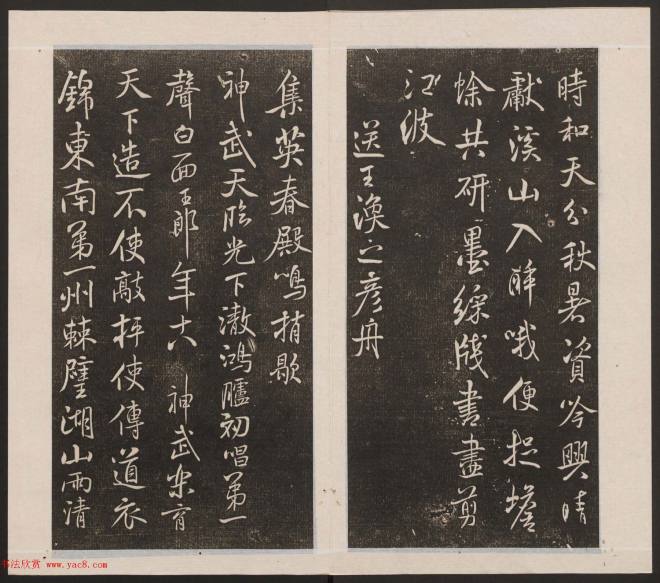 時和天分秋暑資吟興晴
獻溪山入醉哦便捉蟾
蜍共研墨綵牋書盡剪
江波
送王渙之彥舟
集英春殿鳴捎歇
神武天臨光下澈鴻臚初唱第一
聲白面王郎年十八 神武樂育
天下造不使敲枰使傳道衣
錦東南第一州棘璧湖山兩清
书法欣赏 www.yac8.com